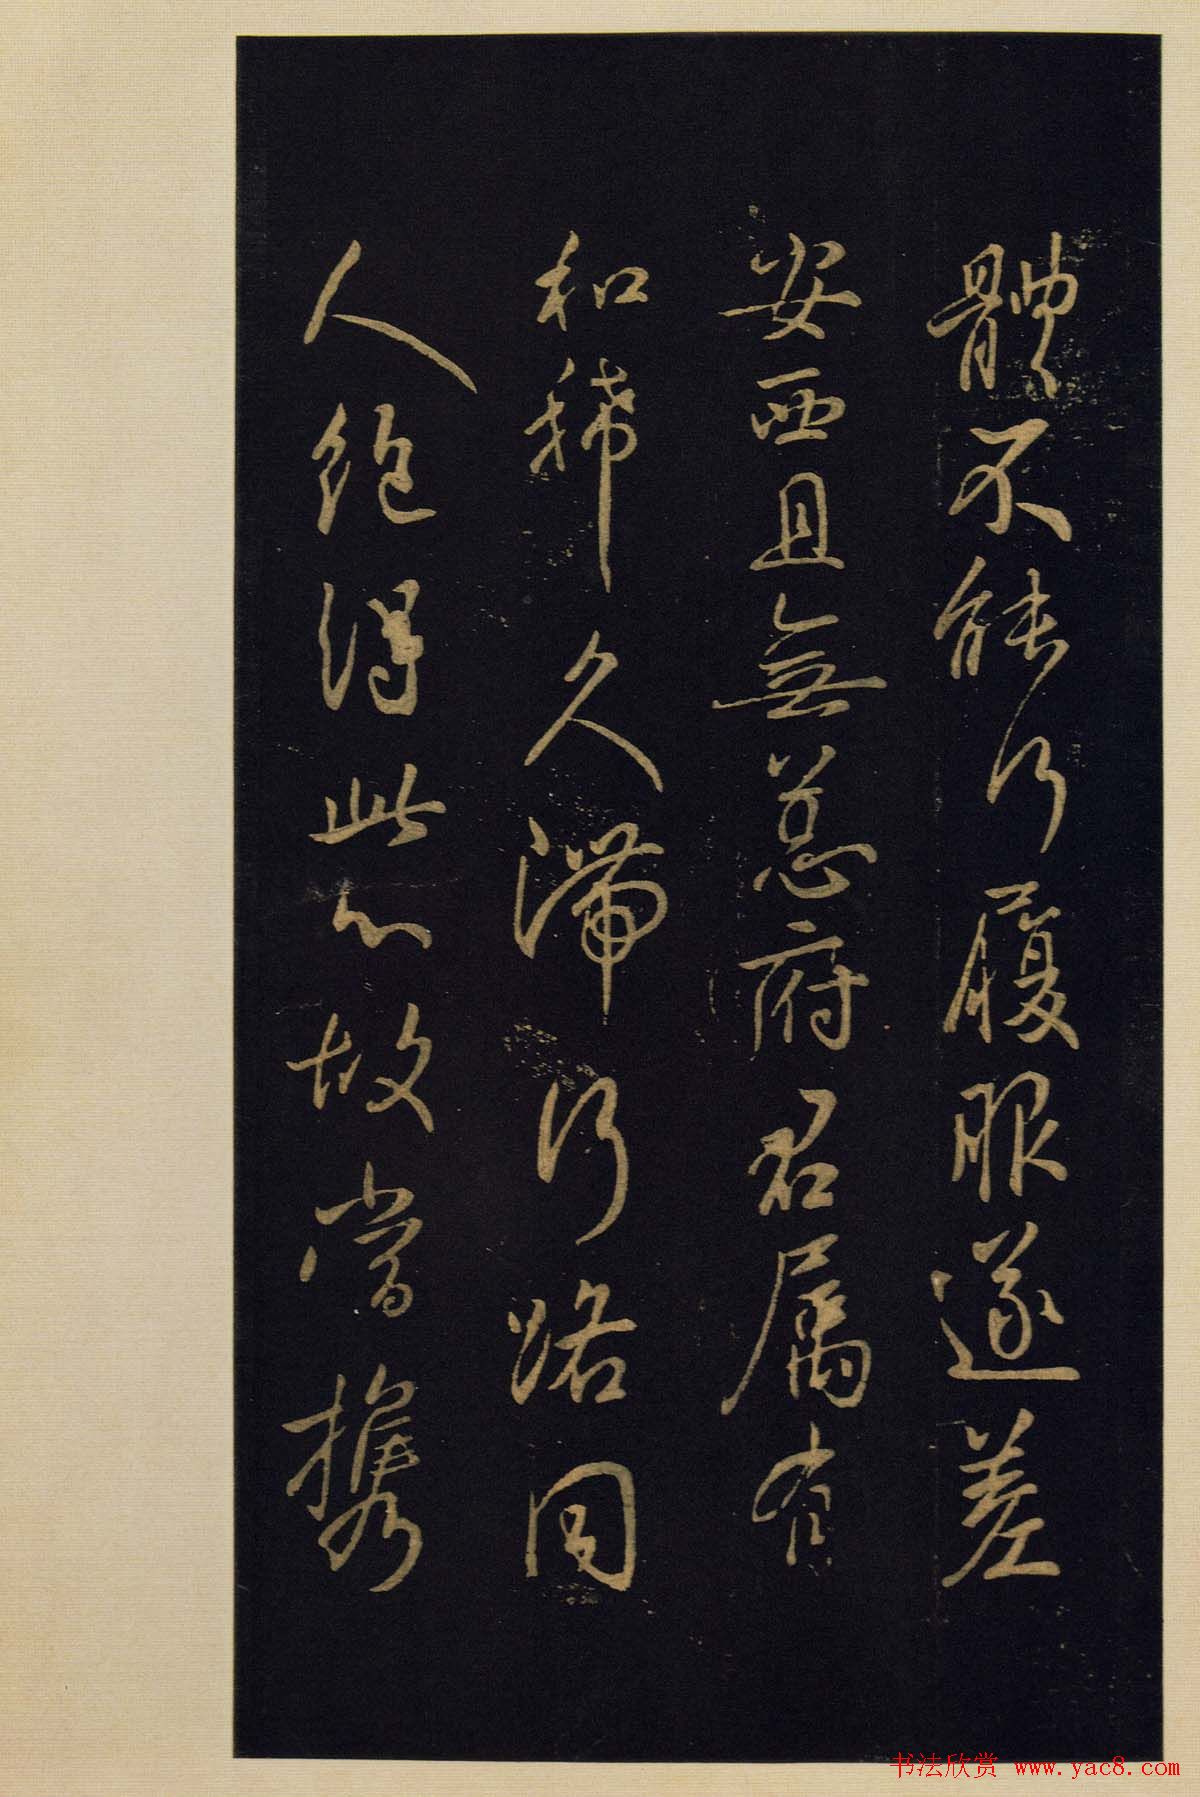 體不能行履眼遂差
安西且無恙府君屬有
和稀久滯行路同
人絶得此心故當攜
书法欣赏 www.yac8.com